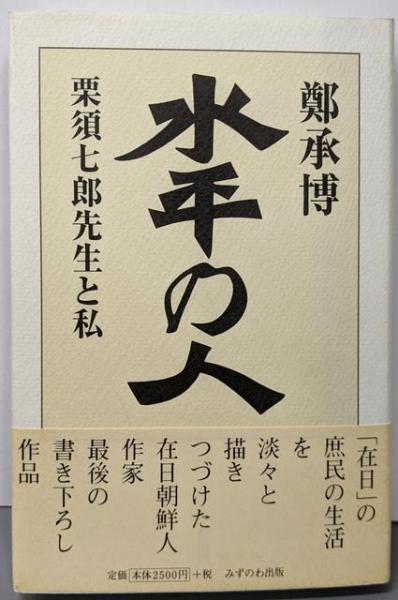 鄭承博
水平の人
栗須七郎先生と私
「在日」の
庶民の生活
を
淡々と
描き
つづけた
在日朝鮮人
作家
最後の
書き下ろし
作品
定価 本体2500円 +税 みずのわ出版